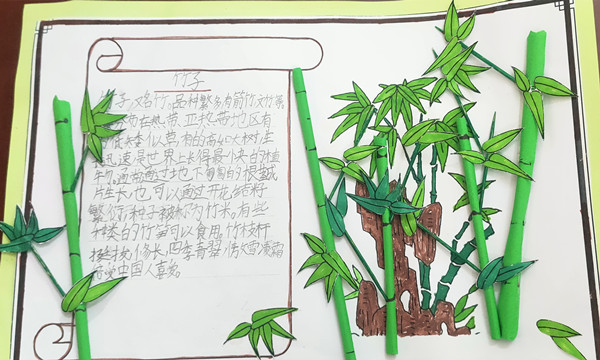 竹子
竹子,又名竹。品种繁多有箭竹
在热带、亚热带地区有
的低矮似草,有的高如大树生
迅速是世界上长得最快的植
物。通过地下匍匐的根茎
生长,也可以通过开花结籽
繁衍种子被称为竹米。有些
种类的竹笋可以食用。竹枝杆
挺拔,修长,四季青翠,傲雪凌霜
中国人喜爱